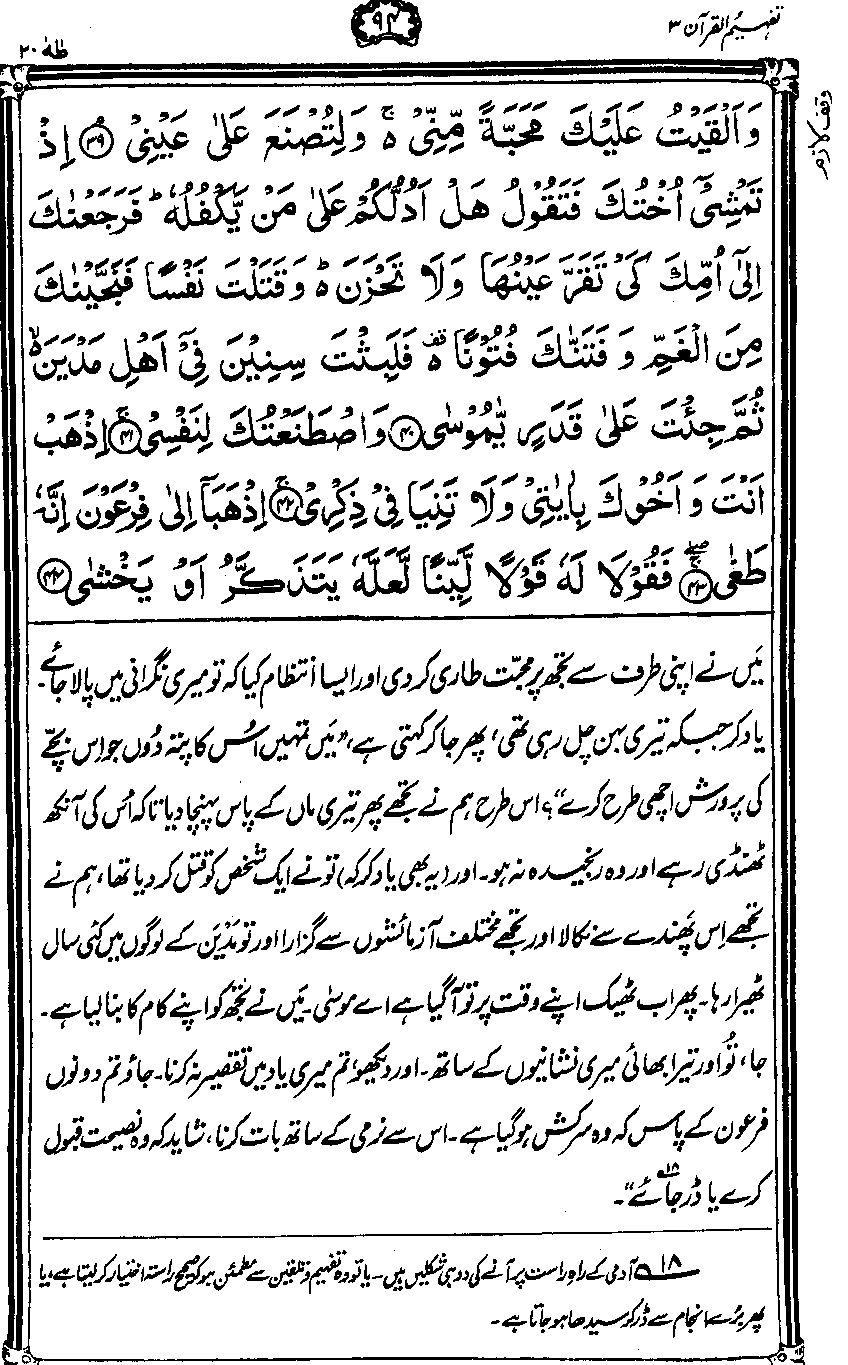 تفہیم القرآن ۳
۹۴
طٰهٰ ۲۰
وقف لازم
وَاَلْقَيْتُ عَلَيْكَ مَحَبَّةً مِّنِّيْ ۚ وَلِتُصْنَعَ عَلٰى عَيْنِيْ ۝۳۹ اِذْ
تَمْشِيْٓ اُخْتُكَ فَتَقُوْلُ هَلْ اَدُلُّكُمْ عَلٰى مَنْ يَّكْفُلُهٗ ؕ فَرَجَعْنٰكَ
اِلٰٓى اُمِّكَ كَيْ تَقَرَّ عَيْنُهَا وَلَا تَحْزَنَ ؕ وَقَتَلْتَ نَفْسًا فَنَجَّيْنٰكَ
مِنَ الْغَمِّ وَ فَتَنّٰكَ فُتُوْنًا ۟ فَلَبِثْتَ سِنِيْنَ فِيْٓ اَهْلِ مَدْيَنَ ۙ
ثُمَّ جِئْتَ عَلٰى قَدَرٍ يّٰمُوْسٰى ۝۴۰ وَاصْطَنَعْتُكَ لِنَفْسِيْ ۝۴۱ اِذْهَبْ
اَنْتَ وَ اَخُوْكَ بِاٰيٰتِيْ وَلَا تَنِيَا فِيْ ذِكْرِيْ ۝۴۲ اِذْهَبَآ اِلٰى فِرْعَوْنَ اِنَّهٗ
طَغٰى ۝۴۳ فَقُوْلَا لَهٗ قَوْلًا لَّيِّنًا لَّعَلَّهٗ يَتَذَكَّرُ اَوْ يَخْشٰى ۝۴۴
مَیں نے اپنی طرف سے تجھ پر محبّت طاری کر دی اور ایسا انتظام کیا کہ تو میری نگرانی میں پالا جائے۔
یاد کر جبکہ تیری بہن چل رہی تھی، پھر جا کر کہتی ہے، ”مَیں تمہیں اُس کا پتہ دُوں جو اِس بچّے
کی پرورش اچھی طرح کرے“؟ اس طرح ہم نے تجھے پھر تیری ماں کے پاس پہنچا دیا تاکہ اُس کی آنکھ
ٹھنڈی رہے اور وہ رنجیدہ نہ ہو۔ اور (یہ بھی یاد کر کہ) تو نے ایک شخص کو قتل کر دیا تھا، ہم نے
تجھے اِس پَھندے سے نکالا اور تجھے مختلف آزمائشوں سے گزارا اور تو مَدْیَن کے لوگوں میں کئی سال
ٹھیرا رہا۔ پھر اب ٹھیک اپنے وقت پر تو آ گیا ہے اے موسیٰ۔ مَیں نے تجھ کو اپنے کام کا بنا لیا ہے۔
جا، تُو اور تیرا بھائی میری نشانیوں کے ساتھ۔ اور دیکھو، تم میری یاد میں تقصیر نہ کرنا۔ جاؤ تم دونوں
فرعون کے پاس کہ وہ سرکش ہو گیا ہے۔ اس سے نرمی کے ساتھ بات کرنا، شاید کہ وہ نصیحت قبول
کرے یا ڈر جائے۱۸“۔
۱۸ آدمی کے راہِ راست پر آنے کی دو ہی شکلیں ہیں۔ یا تو وہ تفہیم و تلقین سے مطمئن ہو کر صحیح راستہ اختیار کر لیتا ہے، یا
پھر بُرے انجام سے ڈر کر سیدھا ہو جاتا ہے۔